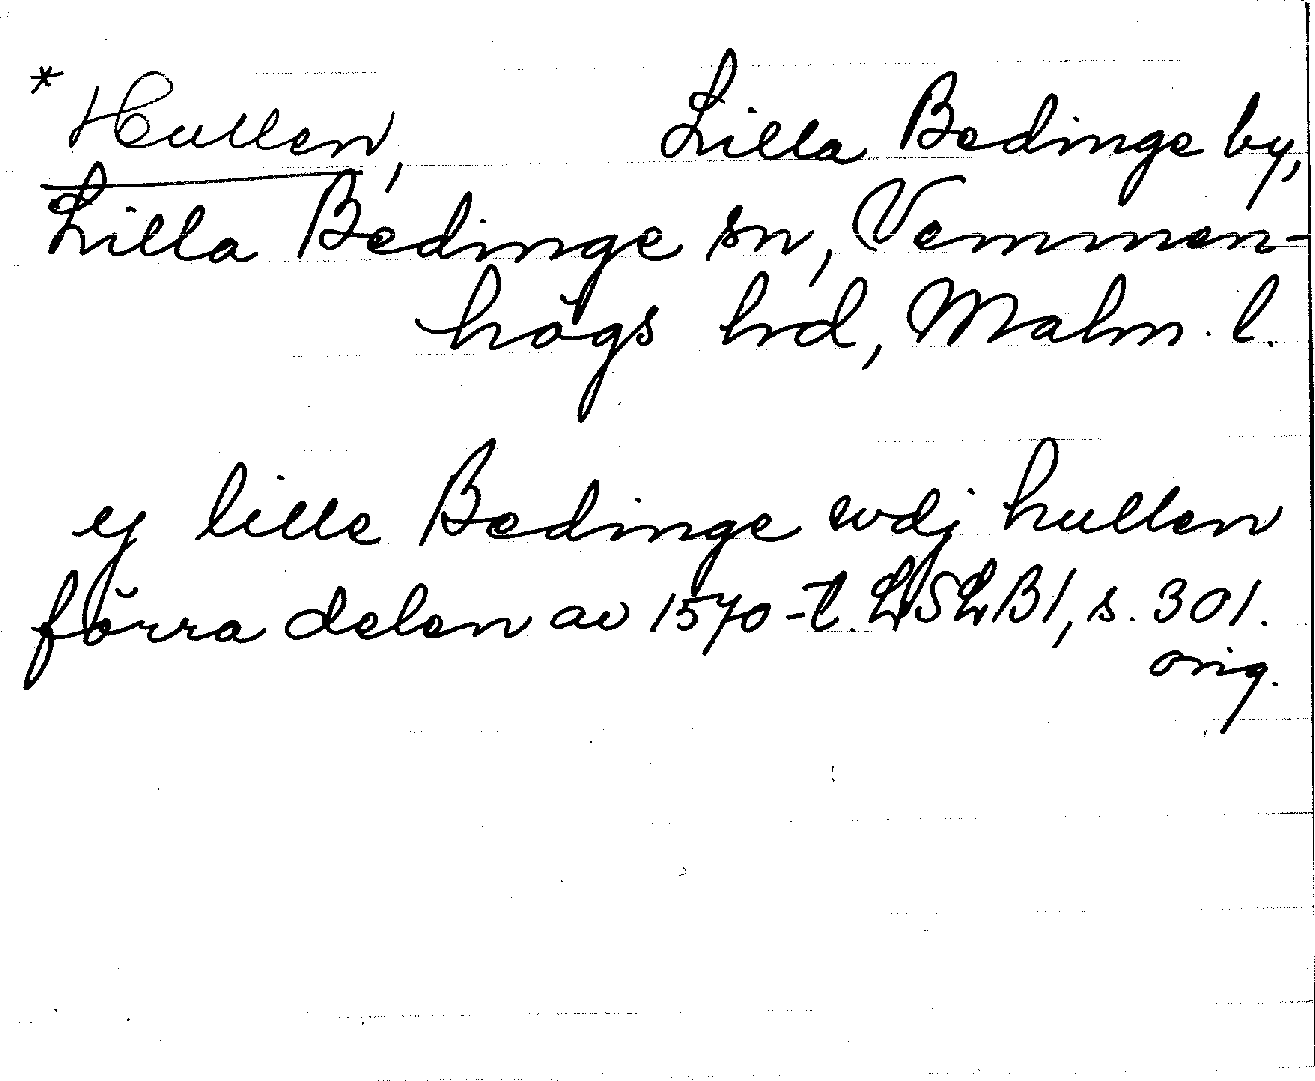 * Hullen, Lilla Bedinge by,
Lilla Bedinge sn, Vemmen-
högs hd, Malm. l.
ej lille Bedinge wdj hullen
förra delen av 1570-t. LSLB1, s. 301.
orig.